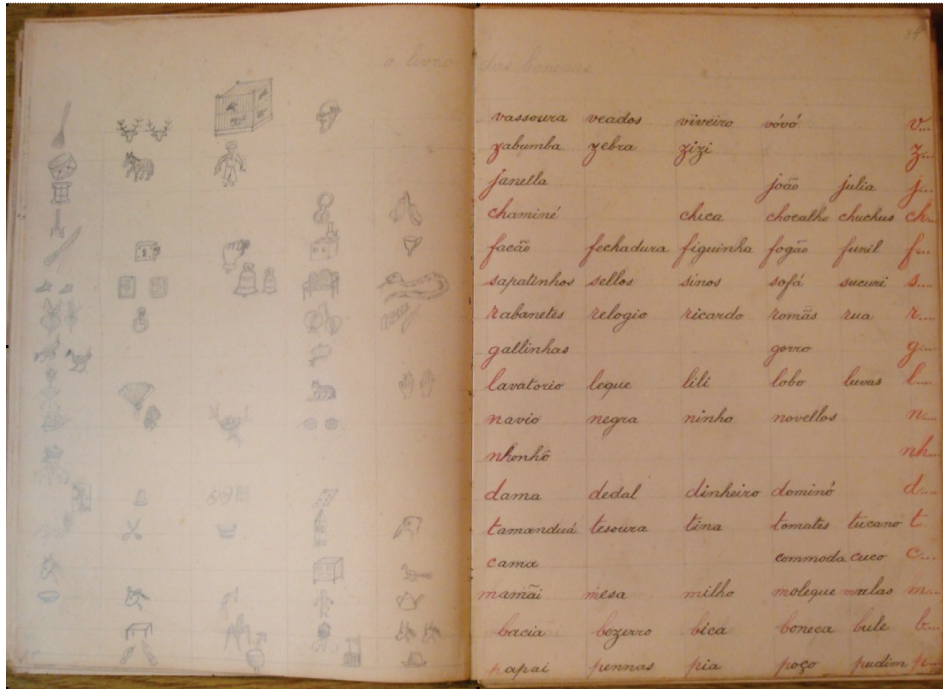 o livro das bonecas
vassoura veados viveiro vóvó v...
zabumba zebra zizi z...
janella joão julia j...
chaminé chica chocalho chuchus ch...
facão fechadura figuinha fogão funil f...
sapatinhos sellos sinos sofá sucuri s...
rabanetes relogio ricardo romãs rua r...
gallinhas gorro g...
lavatorio leque lili lobo luvas l...
navio negra ninho novellos n...
nhonhô nh...
dama dedal dinheiro dominó d...
tamanduá tesoura tina tomates tucano t
cama commoda cuco c...
mamãi mesa milho moleque malas m...
bacia bozerro bica boneca bule b...
papai pennas pia poço pudim p...